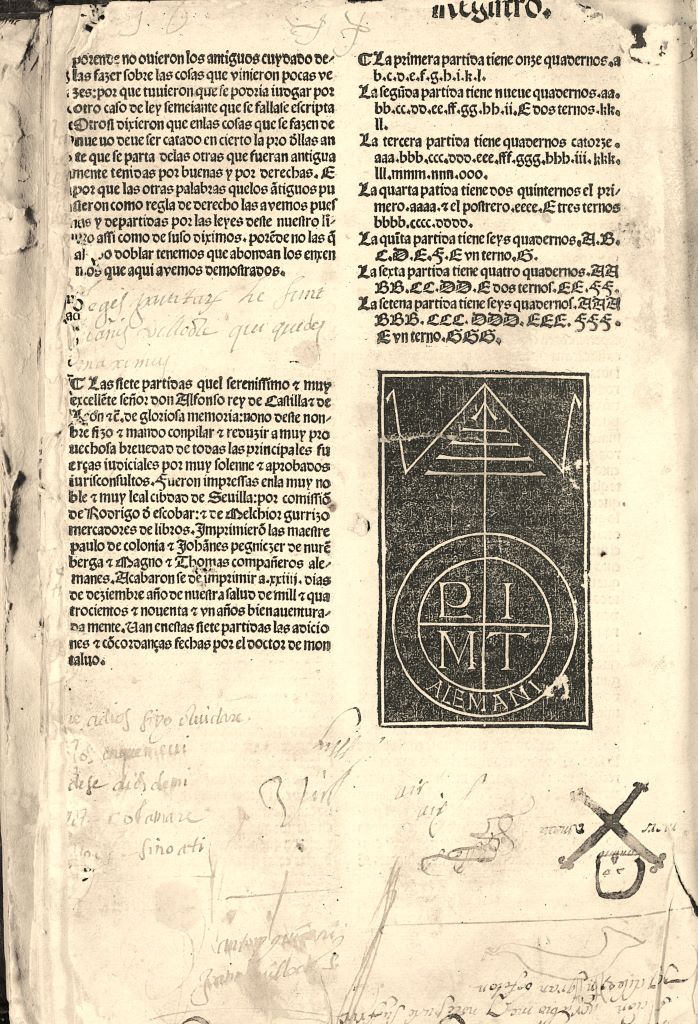 Registro.
porende no ouieron los antiguos cuydado de
las fazer sobre las cosas que vinieron pocas ve
zes: por que tuuieron que se podria iudgar por
otro caso de ley semeiante que se fallase escripta
Otrosi dixieron que enlas cosas que se fazen de
nueuo deue ser catado en cierto la pro dllas an
te que se parta delas otras que fueran antigua
mente tenidas por buenas y por derechas. E
por que las otras palabras quelos ãtiguos pu
sieron como regla de derecho las avemos pues
tas y departidas por las leyes deste nuestro li
uro assi como de suso diximos. porẽde no las q̃
doblar tenemos que abondan los exen
que aqui avemos demostrados.
⁋ Las siete partidas quel serenissimo ⁊ muy
excellẽte señor don Alfonso rey de Castilla ⁊ de
Leõn ⁊ c̃. de gloriosa memoria: nono deste non
bre fizo ⁊ mando conpilar ⁊ reduzir a muy pro
uechosa breuedad de todas las principales fu
erças iudiciales por muy solenne ⁊ aprobados
iurisconsultos. Fueron impressas enla muy no
ble ⁊ muy leal cibdad de Seuilla: por comissiõ
de Rodrigo d̃ escobar: ⁊ de Melchior gurrizo
mercadores de libros. Imprimierõ las maestre
paulo de colonia ⁊ Johãnes pegniczer de nurẽ
berga ⁊ Magno ⁊ Thomas compañeros ale
manes. Acabaron se de imprimir a .xxiiij. dias
de deziembre año de nuestra salud de mill ⁊ qua
trocientos ⁊ nouenta ⁊ vn años bienauentura
da mente. Uan enestas siete partidas las adicio
nes ⁊ cõcordanças fechas por el doctor de mon
taluo.
⁋ La primera partida tiene onze quadernos. a
b.c.d.e.f.g.h.i.k.l.
La segũda partida tiene nueue quadernos. aa.
bb.cc.dd.ee.ff.gg.hh.ii. E dos ternos. kk.
ll.
La tercera partida tiene quadernos catorze.
aaa.bbb.ccc.ddd.eee.fff.ggg.hhh.iii.kkk.
lll.mmm.nnn.ooo.
La quarta patida tiene dos quinternos el pri
mero. aaaa. ⁊ el postrero. eeee. E tres ternos
bbbb.cccc.dddd.
La quĩta partida tiene seys quadernos. A.B.
C.D.E.F. E vn terno. G.
La sexta partida tiene quatro quadernos. AA
BB.CC.DD. E dos ternos. EE.FF.
La setena partida tiene seys quadernos. AAA
BBB.CCC.DDD.EEE.FFF.
E vn terno. GGG.
P I
M T
ALEMANI